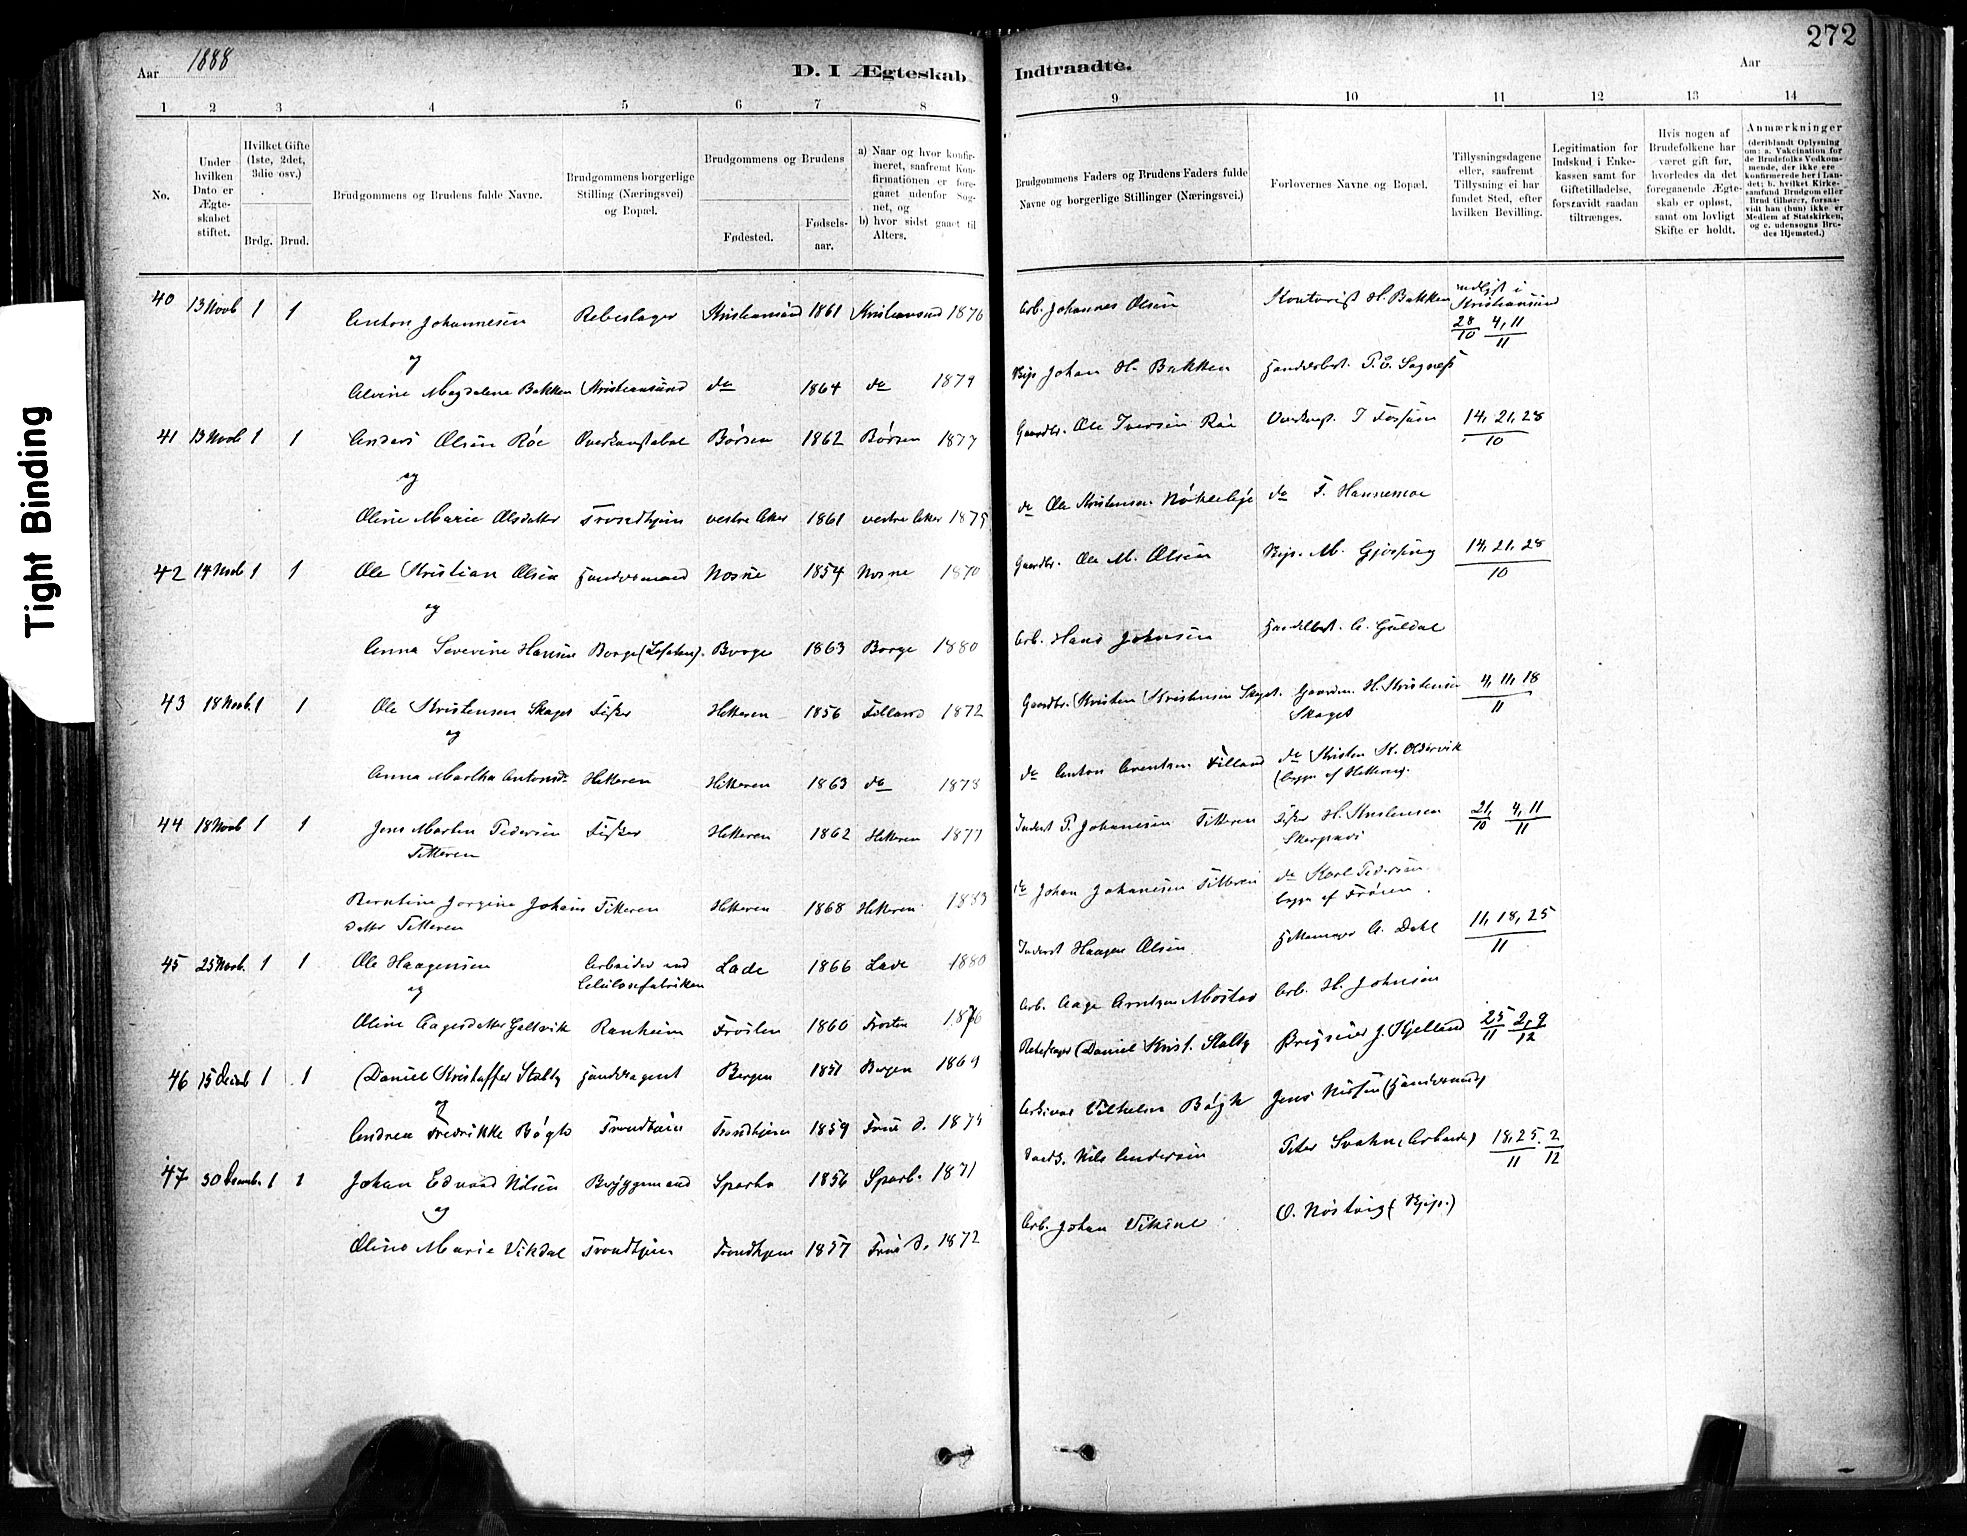 Tight Binding
272
Aar 1888
D. I Ægteskab Indtraadte.
Aar
1 2 3 4 5 6 7 8 9 10 11 12 13 14
No.
Under hvilken Dato er Ægteskabet stiftet.
Hvilket Gifte (1ste, 2det, 3die osv.)
Brdg. Brud.
Brudgommens og Brudens fulde Navne.
Brudgommens borgerlige Stilling (Næringsvei) og Bopæl.
Brudgommens og Brudens
Fødested.
Fødselsaar.
a) Naar og hvor konfirmeret, saafremt Konfirmationen er foregaaet udenfor Sognet, og
b) hvor sidst gaaet til Alters.
Brudgommens Faders og Brudens Faders fulde Navne og borgerlige Stillinger (Næringsvei.)
Forlovernes Navne og Bopæl.
Tillysningsdagene eller, saafremt Tillysning ei har fundet Sted, efter hvilken Bevilling.
Legitimation for Indskud i Enkekassen samt for Giftetilladelse, forsaavidt saadan tiltrænges.
Hvis nogen af Brudefolkene har været gift før, hvorledes da det foregaaende Ægteskab er opløst, samt om lovligt Skifte er holdt.
Anmærkninger (deriblandt Oplysning om: a. Vakcination for de Brudefolks Vedkommende, der ikke ere konfirmerede her i Landet; b. hvilket Kirkesamfund Brudgom eller Brud tilhører, forsaavidt han (hun) ikke er Medlem af Statskirken, og c. udensogns Brudes Hjemsted.)
40 13 Novb 1 1 Anton Johannesen Rebeslager Kristiansund 1861 Kristiansund 1876 Arb. Johannes Olsen Kontorist H. Bakken i Kristiansund 28/10 4, 11/11
og
Alvine Magdalene Bakken Kristiansund do 1864 do 1879 Johan H. Bakken
41 13 Novb 1 1 Anders Olsen Røe Overkonstabel Børsen 1862 Børsen 1877 Gaardbr. Ole Iversen Røe J Fossum 14, 21, 28/10
og
Oline Marie Olsdatter Trondhjem vestre Aker 1861 vestre Aker 1875 do Ole Kristensen do F. Hannemoe
42 14 Novb 1 1 Ole Kristian Olsen Handelsmand Nosne 1854 Nosne 1870 Gaardbr. Ole M. Olsen Kjp. M. 14, 21, 28/10
og
Anna Severine Hansen Borge (Lofoten). Borge 1863 Borge 1880 Arb. Hans Johnsen
43 18 Novb. 1 1 Ole Kristensen Skaget Fisker Hitteren 1856 Filland 1872 Gaardbr. Kristen Kristensen Skaget. Gaardm. H. Kristensen Skaget 4, 11, 18/11
og
Anna Martha Antonsd. Hitteren Hitteren 1863 do 1878 do Anton Arentsen Filland do Kristen K. Oldervik (begge af Hitteren).
44 18 Novb 1 1 Jens Martin Pedersen Titteren Fisker Hitteren 1862 Hitteren 1877 Inderst P. Johannesen Titteren Fisker H. Kristensen 21/10 4, 11/11
Berntine Jørgine Johansdatter Titteren Titteren Hitteren 1868 Hitteren 1883 do Johan Johannesen Titteren do Karl Pedersen begge af Frøien.
45 25 Novb. 1 1 Ole Haagensen Arbeider ved Celulosefabriken Lade 1866 Lade 1880 Inderst Haagen Olsen A. Dahl 11, 18, 25/11
og
Oline Aagesdatter Ranheim Frosten 1860 Frosten 1876 Arb. Aage Arntsen Mostad Arb. H. Johnsen
46 15 Decmb 1 1 Daniel Kristoffer Stolty Handelsagent Bergen 1851 Bergen 1869 Rebslager Daniel Krist. Stolty J. Kjelland 25/11 2, 9/12
og
Andrea Fredrikke Bøgh Trondhjem Trondhjem 1859 Frue S. 1875 Vilhelm Bøgh Jens Nissen (Handelsmand)
47 30 Decmbr. 1 1 Johan Edvard Nilsen Bryggemand Sparbo 1856 Sparb. 1871 Nils Andersen Peter Svahn (Arbeider) 18, 25/11 2/12
og
Oline Marie Vikdal Trondhjem Trondhjem 1857 Frue S. 1872 Arb. Johan O. (Kjp.)